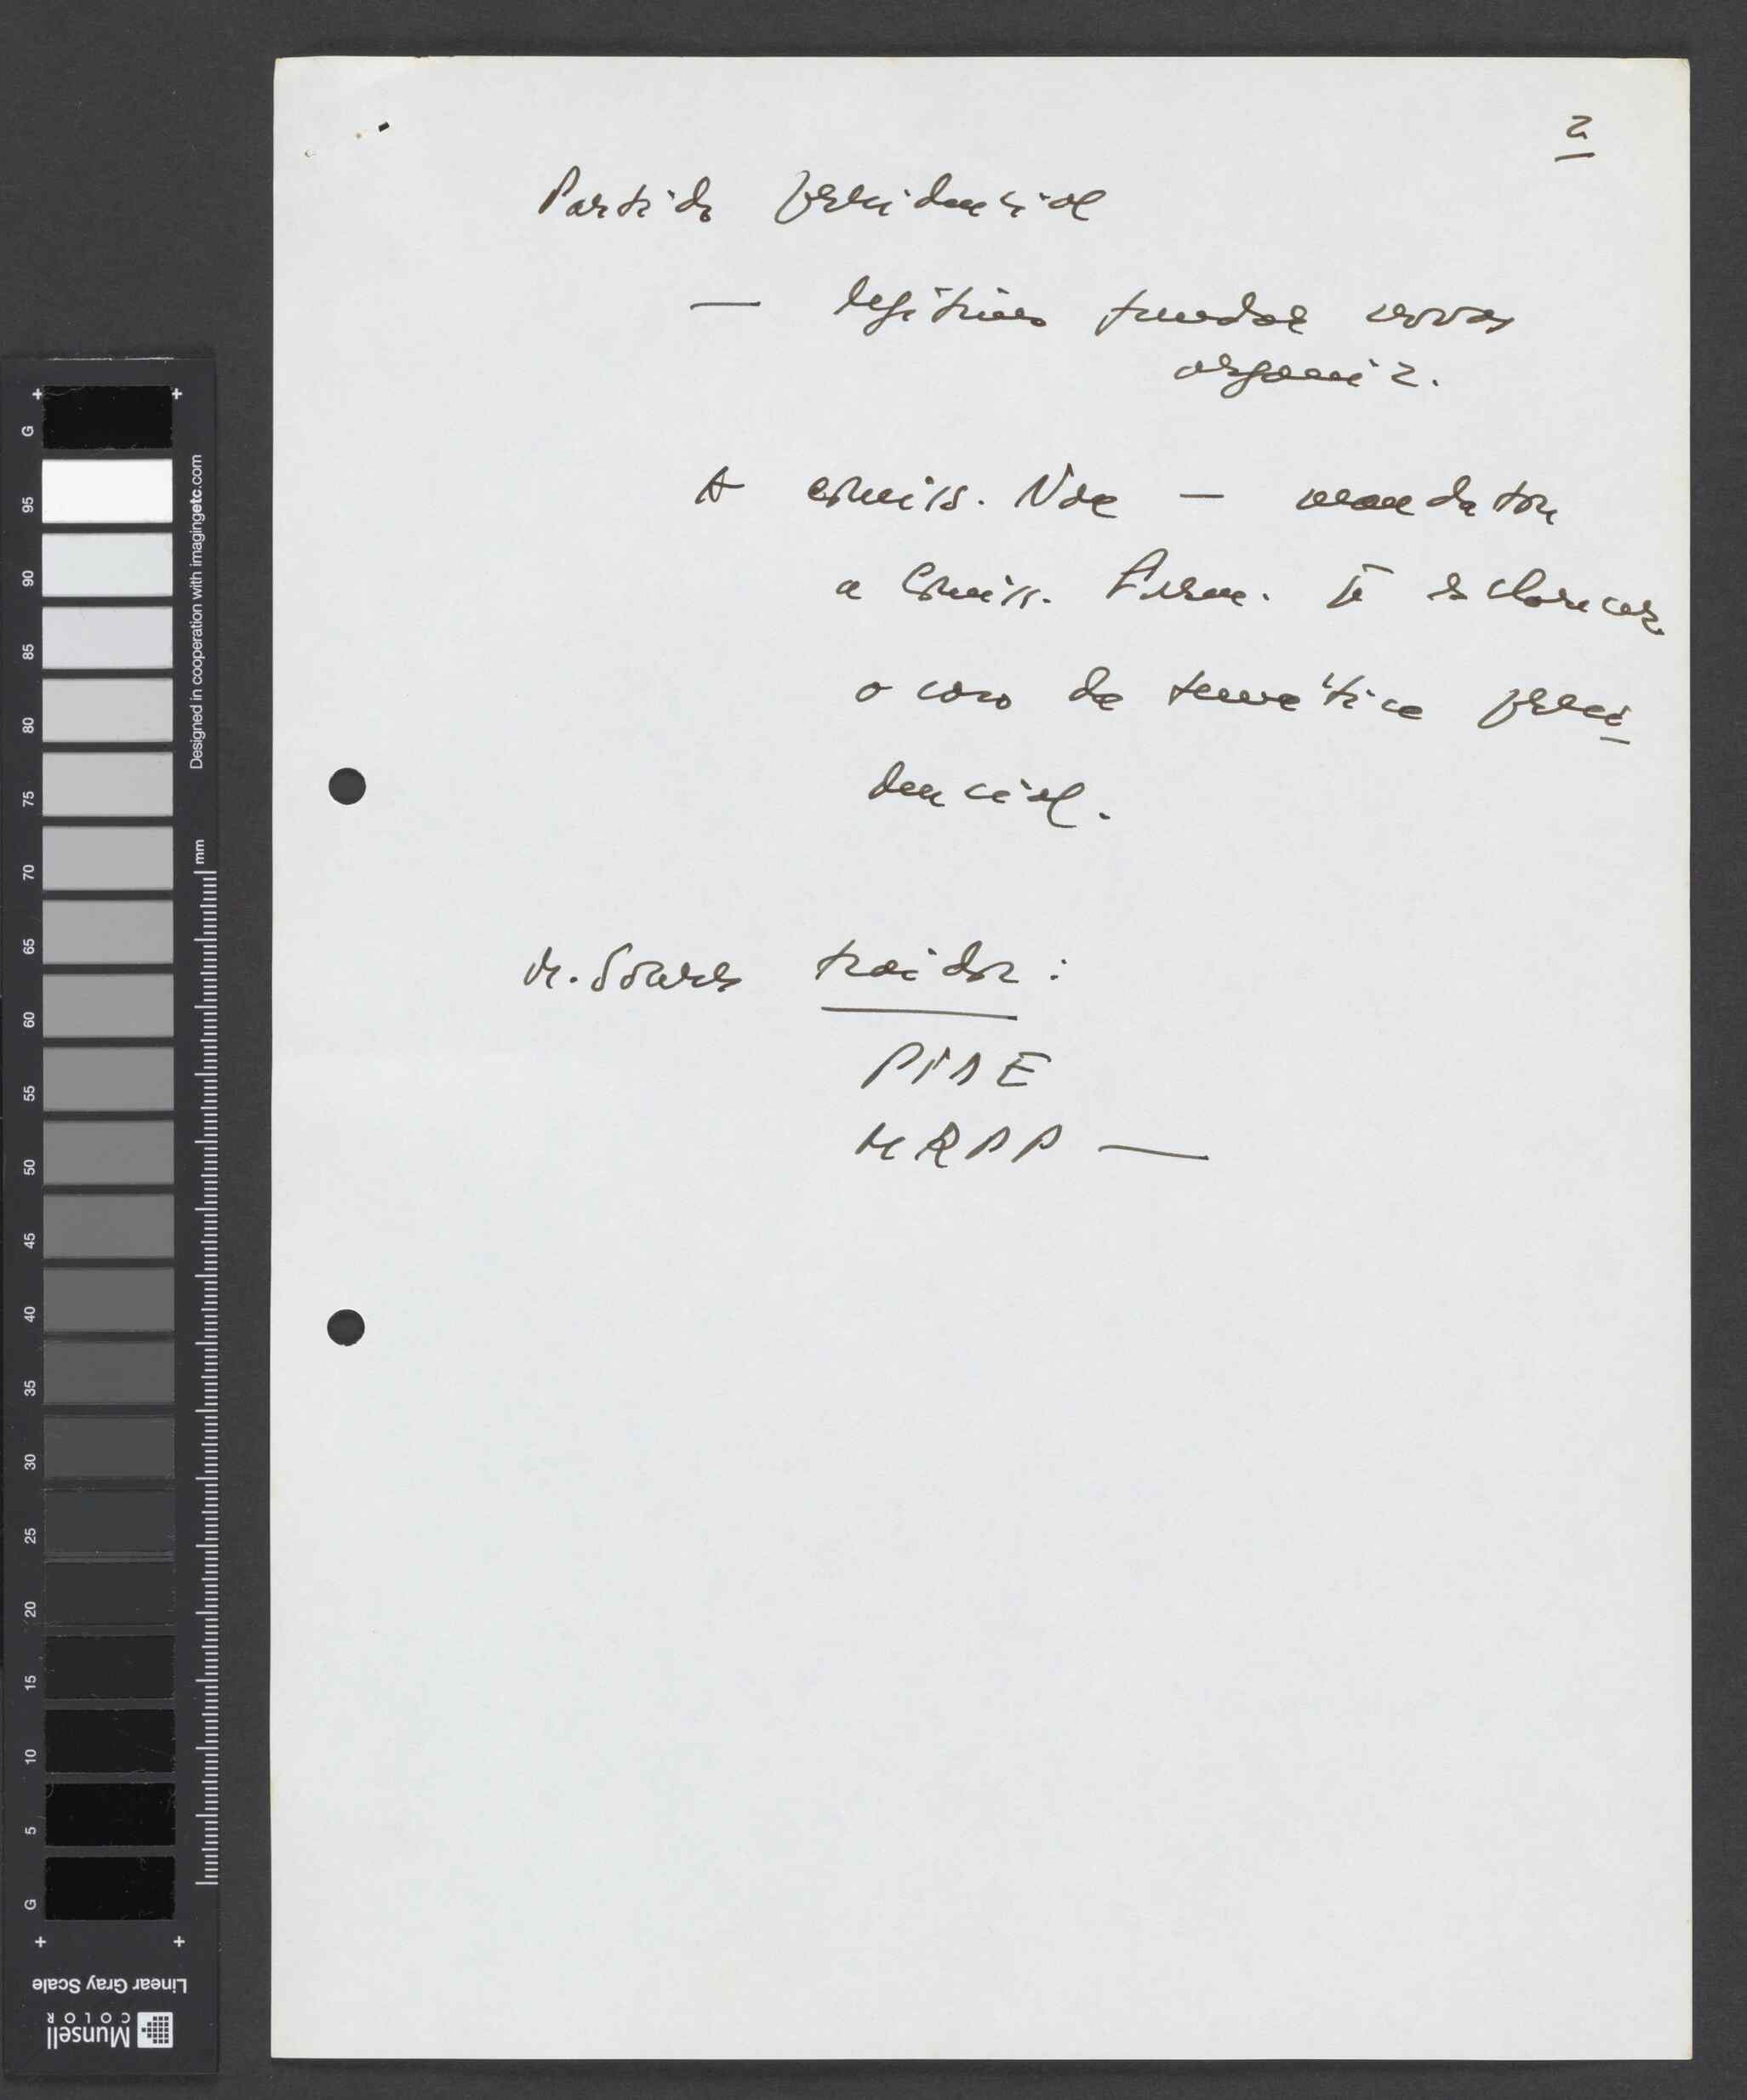 2
Partido presidencial
— legítimo fundar novas
organiz.
A comiss. Nac — mandatou
a Comiss. Perm. p/ esclarecer
o caso da temática presi
dencial.
M. Soares traidor:
PIDE
MRPP —
G
95
90
85
80
75
70
65
60
55
50
45
40
35
30
25
20
15
10
5
G
Designed in cooperation with imagingetc.com
mm
Linear Gray Scale
Munsell
COLOR